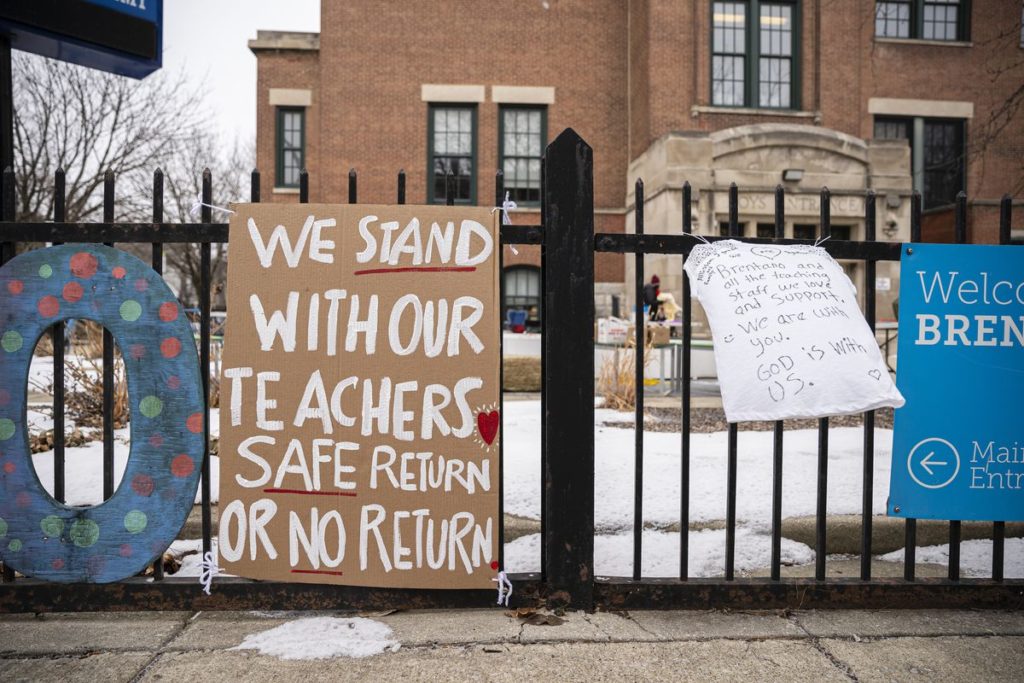 O
WE STAND
WITH OUR
TEACHERS
SAFE RETURN
OR NO RETURN
Brentano and
all the teaching
staff we love
and support.
We are with
you.
GOD is with
us.
OYS ENTRANCE
Welco
BREN
Main
Entr